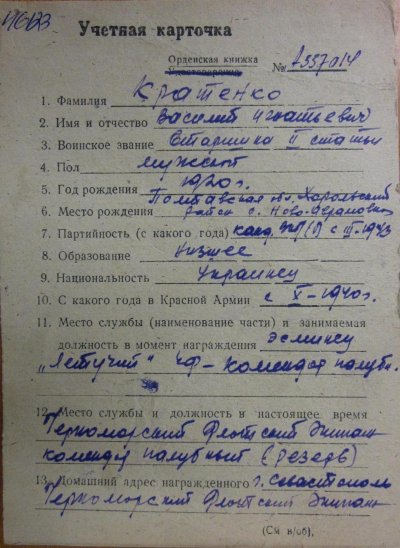 Учетная карточка
Орденская книжка
Удостоверение № А557014
1. Фамилия Кратенко
2. Имя и отчество Василий Игнатьевич
3. Воинское звание Старшина II статьи
4. Пол мужской
5. Год рождения 1920 г.
Полтавская обл. Хорольский
6. Место рождения район с. Ново-Аврамовка
7. Партийность (с какого года) канд. ВКП(б) с III-1943
8. Образование низшее
9. Национальность Украинец
10. С какого года в Красной Армии с X-1940г.
11. Место службы (наименование части) и занимаемая
должность в момент награждения Эсминец
„Летучий" ЧФ - комендор палубн.
12. Место службы и должность в настоящее время
Черноморский Флотский Экипаж
комендор палубный (резерв)
13. Домашний адрес награжденного г. Севастополь
Черноморский Флотский Экипаж
(См. в/об),